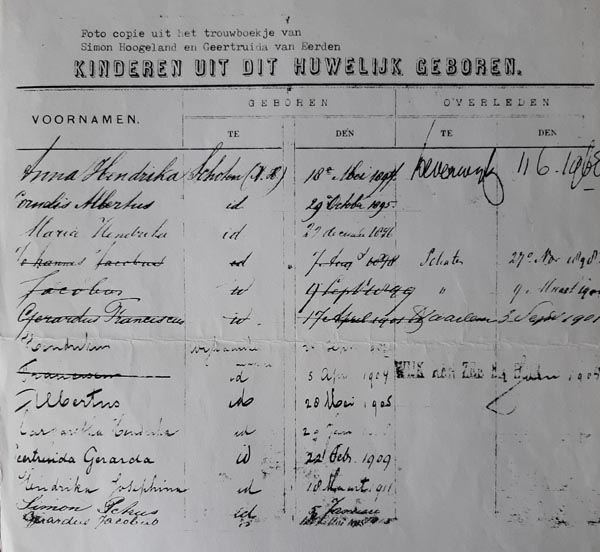 Foto copie uit het trouwboekje van
Simon Hoogeland en Geertruida van Eerden
KINDEREN UIT DIT HUWELIJK GEBOREN.
VOORNAMEN. GEBOREN OVERLEDEN
TE DEN TE DEN
Anna Hendrika Schoten (N.H.) 18e Mei 1894 Beverwijk 11 6 - 1968
Cornelis Albertus id 29 Octobr 1895.
Maria Hendrika id 29 december 1896
Johannes Jacobus id 7 Aug 1898 Schoten 27e Nov 1898
Jacobus id 9 Sept 1899 " 9 Maart
Gerardus Franciscus id 17 April 1901 Haarlem 3 Sept 1901
Hendrikus
Franciscus id 5 Apr 1904 Wijk aan Zee
Albertus id 28 Mei 1905
Margaretha Hendrika id 29 Juni
Geertruida Gerarda id 22 Febr. 1909
Hendrika Josephina id 18 Maart 1911
Simon Petrus id 5 Januari
Gerardus Jacobus